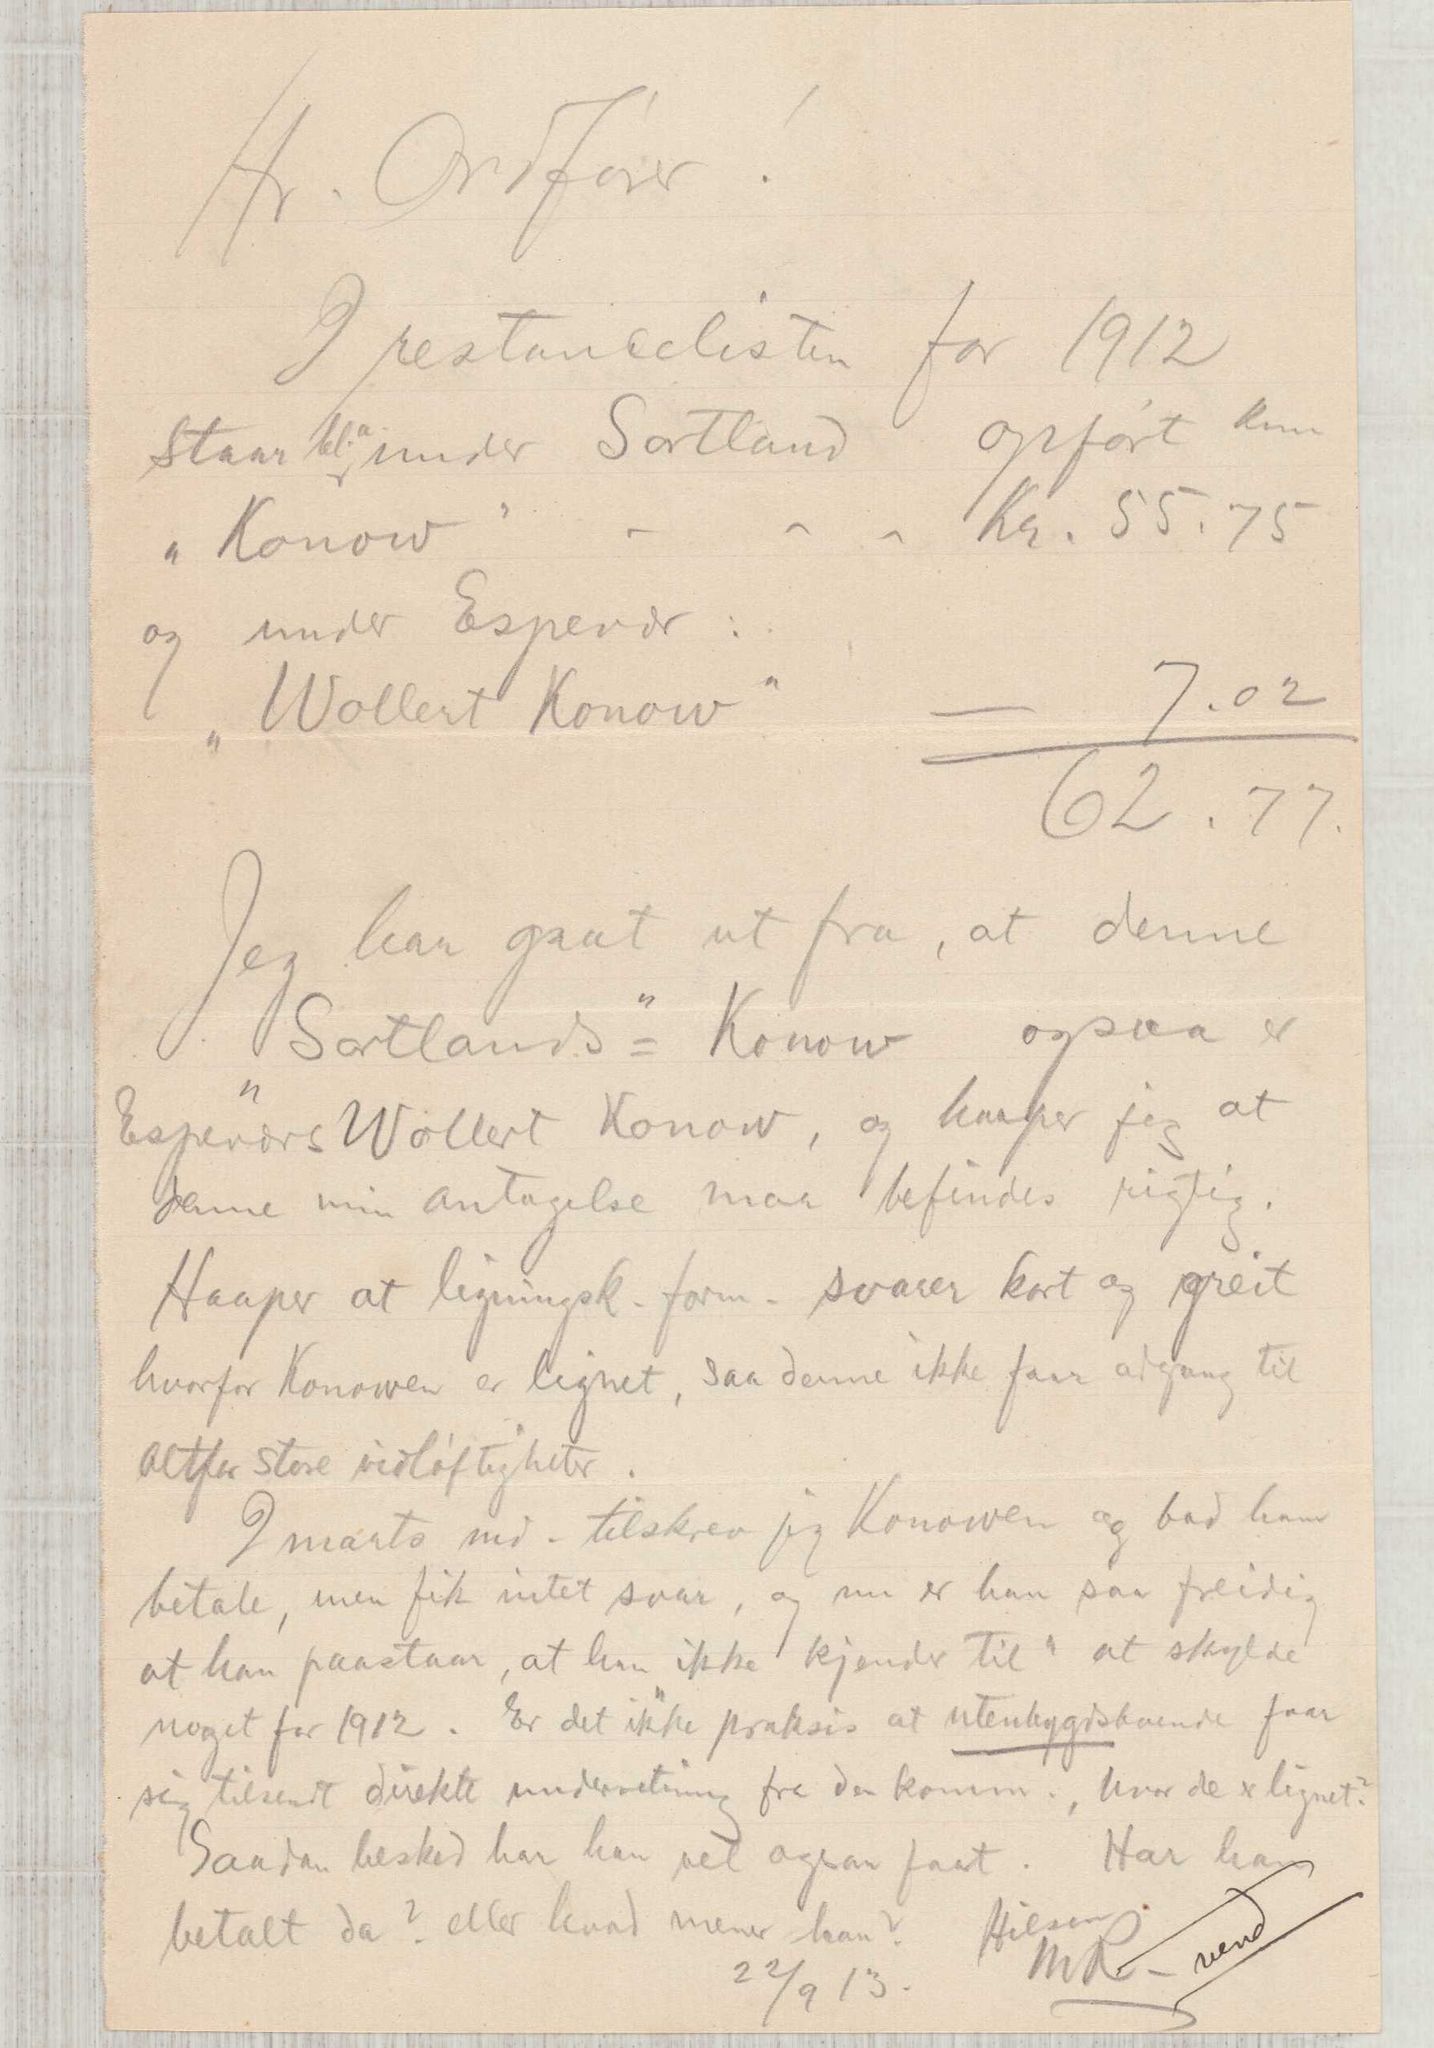 Hr. Ordfører!
I restancelisten for 1912
staar bl. a. under Sortland opført kun
„Konow" - - - Kr. 55.75
og under Espevær:
„Wollert Konow" — 7.02
62.77.
Jeg har gaat ut fra, at denne
„Sortlands"= Konow ogsaa er
Espeværs Wollert Konow, og haaper jeg at
denne min antagelse maa befindes rigtig.
Haaper at ligningsk. form. svarer kort og greit
hvorfor Konowen er lignet, saa denne ikke faar adgang til
altfor store vidløftigheter.
I marts md. tilskrev jeg Konowen og bad ham
betale, men fik intet svar, og nu er han saa freidig
at han paastaar, at han ikke „kjender til" at skylde
noget for 1912. Er det ikke praksis at utenbygdsboende faar
sig tilsendt direkte underretning fra den komm., hvor de er lignet?
Saadan besked har han vel ogsaa faat. Har han
betalt da? eller hvad mener han? Hilsen
22/9 13. MR- vend